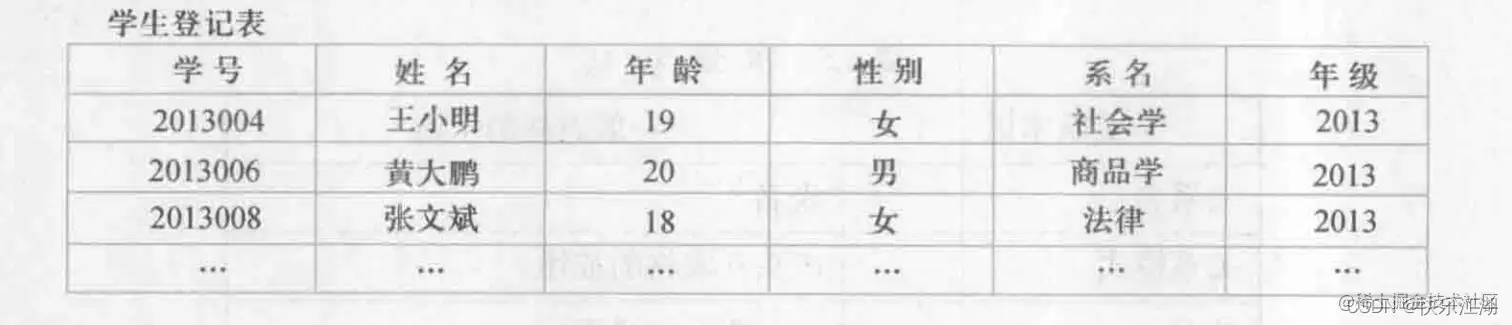 学生登记表
学号 姓名 年龄 性别 系名 年级
2013004 王小明 19 女 社会学 2013
2013006 黄大鹏 20 男 商品学 2013
2013008 张文斌 18 女 法律 2013
… … … … … …
@稀土掘金技术社区
CSDN @快乐江湖